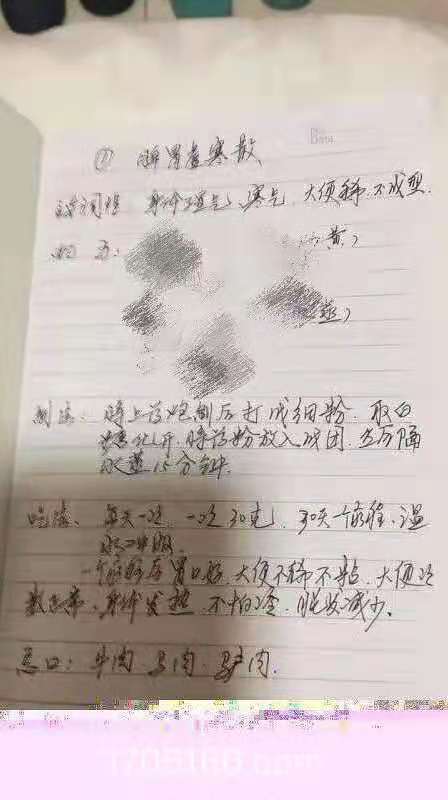 ① 脾胃虚寒散
调理 身体湿气、寒气、大便稀、不成型
配方： 黄）
蒸）
制法：将上药炮制后打成细粉，取白
化开，将药粉放入成团，然后隔
水蒸15分钟。
吃法：每天一次，一次30克，30天一个疗程，温
水冲服。
一个疗程后胃口好，大便不稀不粘，大便次
数正常，身体发热，不怕冷，脱发减少。
忌口：牛肉 马肉 驴肉.